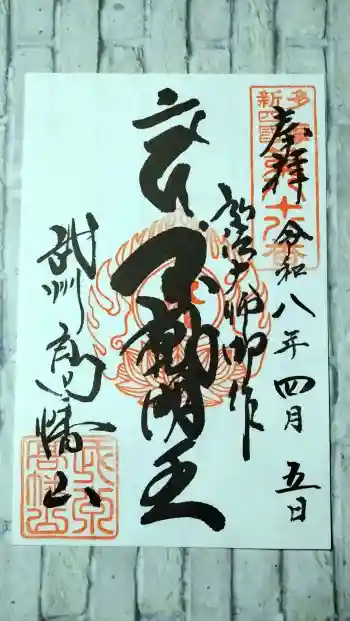 多摩
新四国
八十八番
奉拝 令和八年四月五日
弘法大師御作
不動明王
武州 高幡山